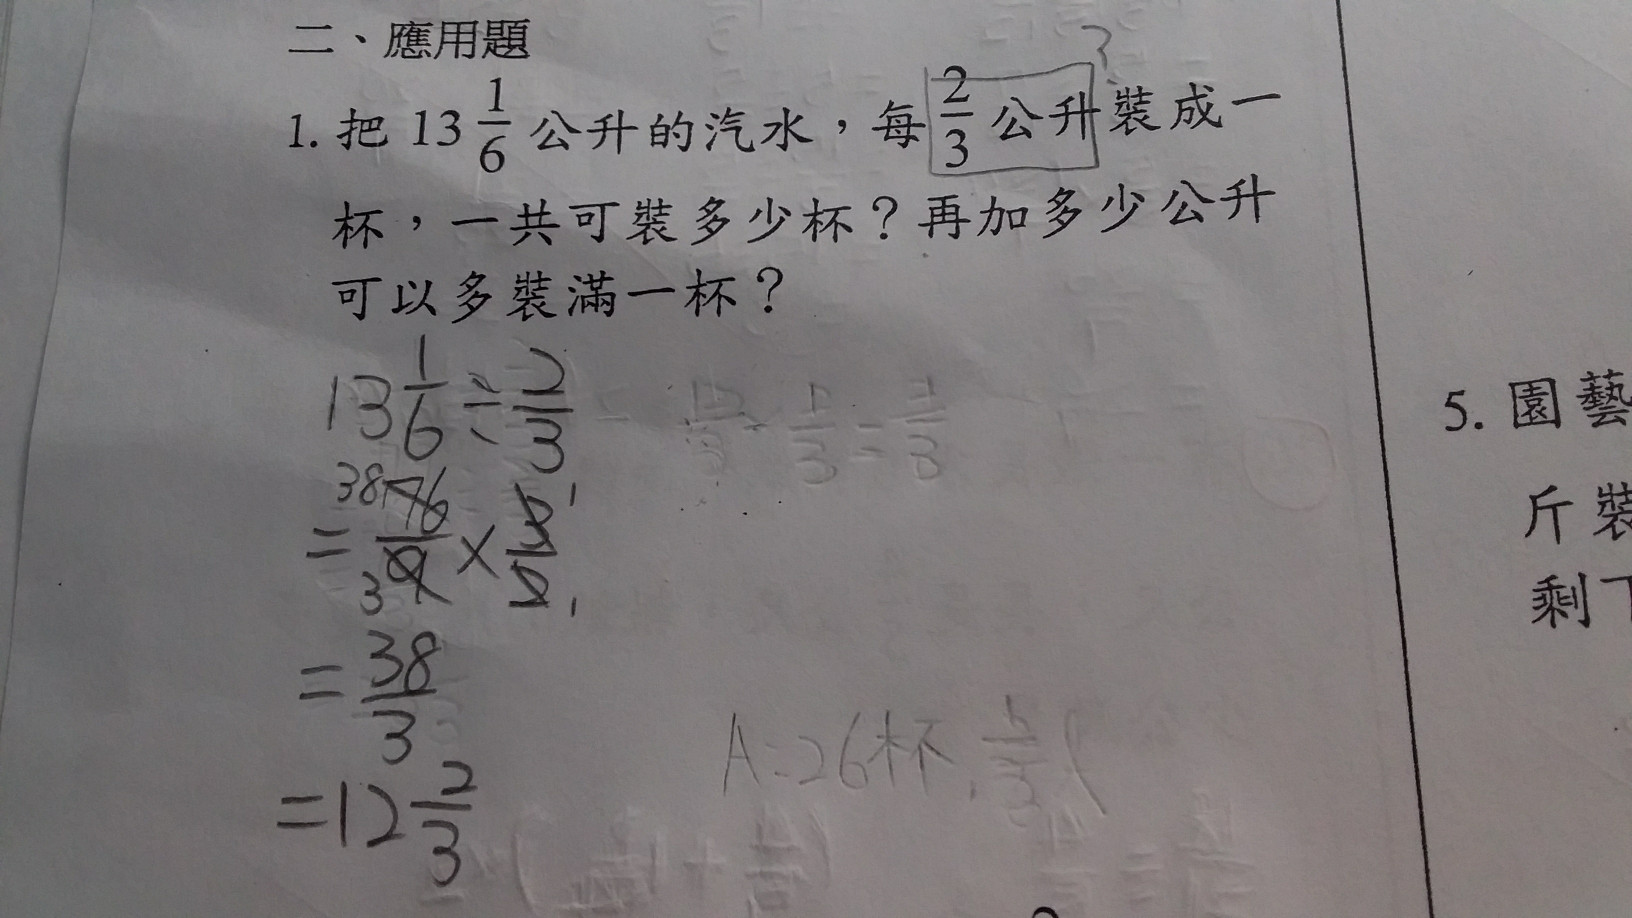 二、應用題
1. 把 13 1/6 公升的汽水，每 2/3 公升裝成一
杯，一共可裝多少杯？再加多少公升
可以多裝滿一杯？
3
13 1/6 ÷ 2/3
= 38 76/9 3 × 3/2 1 1
= 38/3
= 12 2/3
A:26杯,
5. 園藝
斤裝
剩下